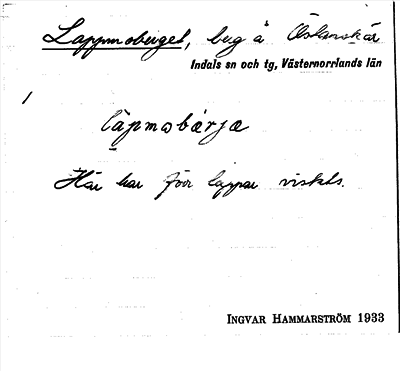 Lappmoberget, berg å Östanskär
Indals sn och tg, Västernorrlands län
1
làpmobærjæ
Här har förr lappar vistats.
INGVAR HAMMARSTRÖM 1933